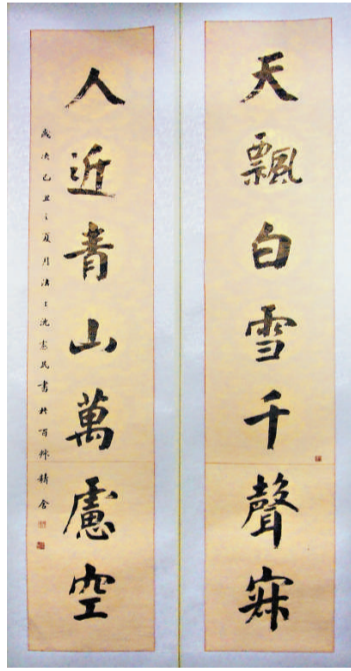 天飄白雪千聲寂
人近青山萬慮空
歲次己丑之夏月沈憲民書於百珠精舍